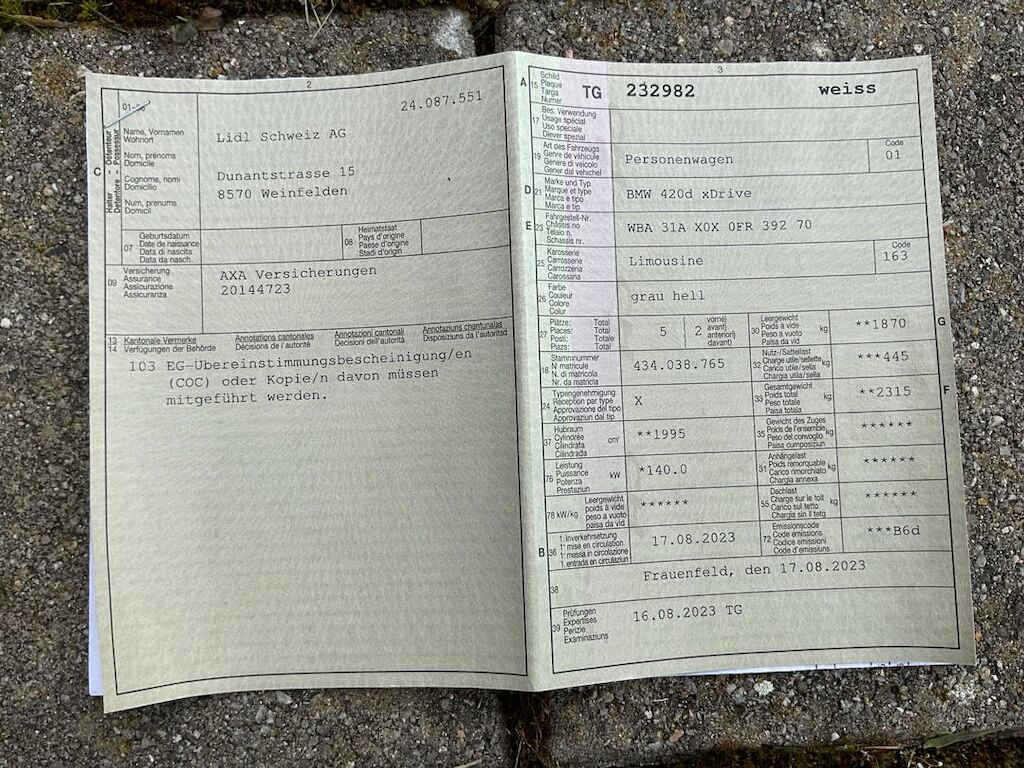 2
01-06
24.087.551
C
Halter - Détenteur
Detentore - Possessur
Name, Vornamen
Wohnort
Nom, prénoms
Domicile
Cognome, nomi
Domicilio
Num, prenums
Domicil
Lidl Schweiz AG
Dunantstrasse 15
8570 Weinfelden
07
Geburtsdatum
Date de naissance
Data di nascita
Data da nasch.
08
Heimatstaat
Pays d'origine
Paese d'origine
Stadi d'origin
09
Versicherung
Assurance
Assicurazione
Assicuranza
AXA Versicherungen
20144723
13 Kantonale Vermerke Annotations cantonales Annotazioni cantonali Annotaziuns chantunalas
14 Verfügungen der Behörde Décisions de l'autorité Decisioni dell'autorità Disposiziuns da l'autoritad
103 EG-Übereinstimmungsbescheinigung/en
(COC) oder Kopie/n davon müssen
mitgeführt werden.
3
A 15
Schild
Plaque
Targa
Numer
TG 232982 weiss
17
Bes. Verwendung
Usage spécial
Uso speciale
Diever spezial
19
Art des Fahrzeugs
Genre de véhicule
Genere di veicolo
Gener dal vehichel
Personenwagen
Code
01
D 21
Marke und Typ
Marque et type
Marca e tipo
Marca e tip
BMW 420d xDrive
E 23
Fahrgestell-Nr.
Châssis no
Telaio n.
Schassis nr.
WBA 31A X0X 0FR 392 70
25
Karosserie
Carrosserie
Carrozzeria
Carossaria
Limousine
Code
163
26
Farbe
Couleur
Colore
Colur
grau hell
27
Plätze: Total
Places: Total
Posti: Totale
Plazs: Total
5 2
vorne)
avant)
anteriori)
davant)
30
Leergewicht
Poids à vide
Peso a vuoto
Paisa da vid
kg
**1870
G
18
Stammnummer
N matricule
N. di matricola
Nr. da matricla
434.038.765
32
Nutz-/Sattellast
Charge utile/sellette
Carico utile/sella
Chargia utila/sella
kg
***445
24
Typengenehmigung
Réception par type
Approvazione del tipo
Approvaziun dal tip
X
33
Gesamtgewicht
Poids total
Peso totale
Paisa totala
kg
**2315
F
37
Hubraum
Cylindrée
Cilindrata
Cilindrada
cm³
**1995
35
Gewicht des Zuges
Poids de l'ensemble
Peso del convoglio
Paisa cumposiziun
kg
******
76
Leistung
Puissance
Potenza
Prestaziun
kW
*140.0
31
Anhängelast
Poids remorquable
Carico rimorchiato
Chargia annexa
kg
******
78 kW/kg
Leergewicht
poids à vide
peso a vuoto
paisa da vid
******
55
Dachlast
Charge sur le toit
Carico sul tetto
Chargia sin il tetg
kg
******
B 36
1. Inverkehrsetzung
1re mise en circulation
1a messa in circolazione
1. entrada en circulaziun
17.08.2023
72
Emissionscode
Code émissions
Codice emissioni
Code d'emissiuns
***B6d
38
Frauenfeld, den 17.08.2023
39
Prüfungen
Expertises
Perizie
Examinaziuns
16.08.2023 TG